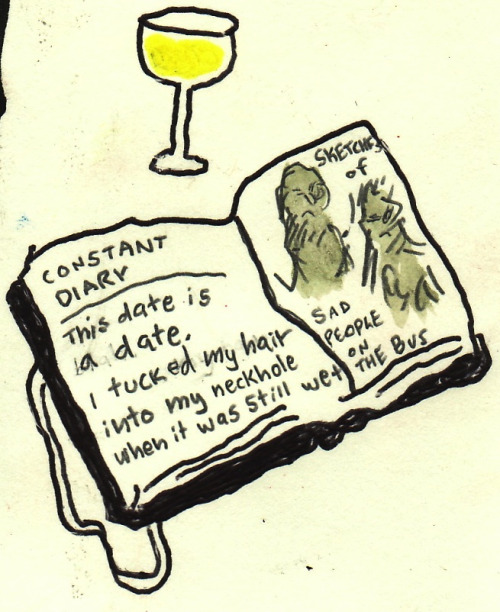 CONSTANT
DIARY
This date is
a date.
I tucked my hair
into my neckhole
when it was still wet
SKETCHES
of
SAD
PEOPLE
ON
THE BUS